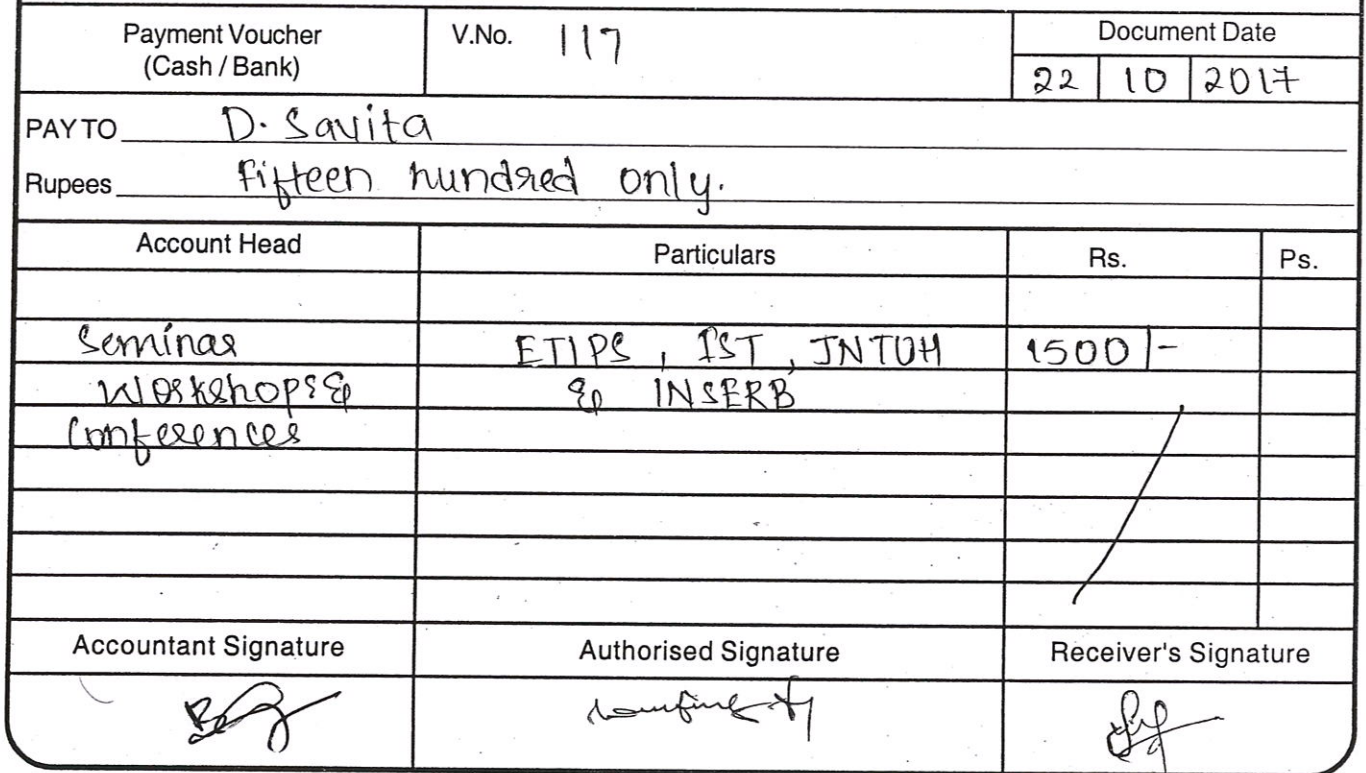 Payment Voucher
(Cash / Bank)
V.No. 117
Document Date
22 10 2017
PAY TO D. Savita
Rupees Fifteen hundred only.
Account Head Particulars Rs. Ps.
Seminar ETIPS , IST , JNTUH 1500/-
Workshops & & INSERB
Conferences
Accountant Signature Authorised Signature Receiver's Signature